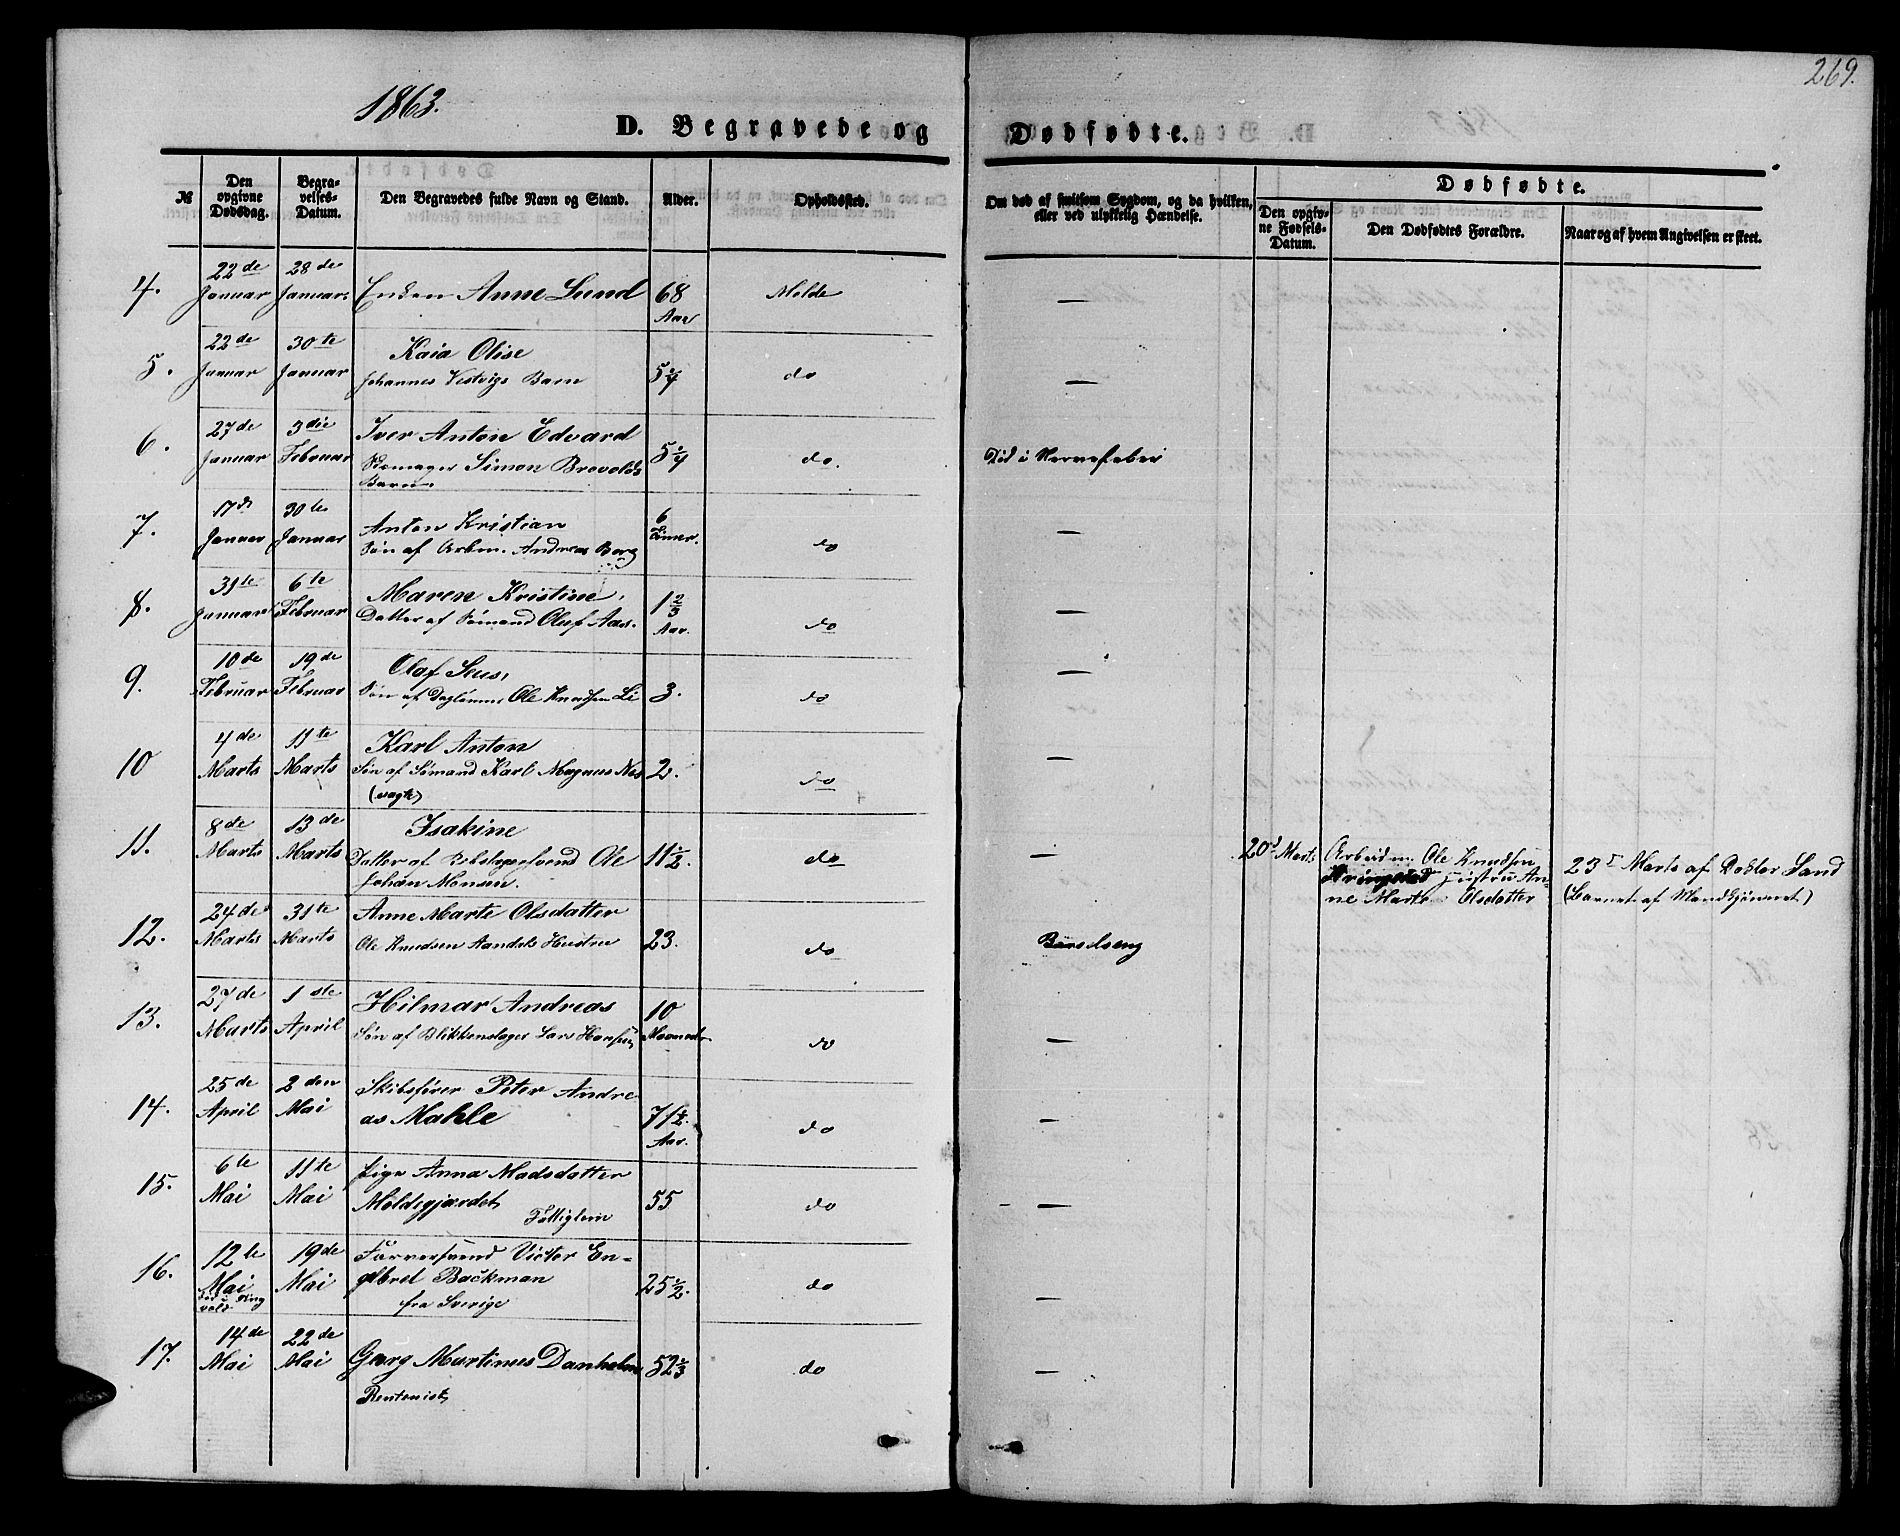 269.
1863.
D. Begravede og Dødfødte.
№ Den opgivne Dødsdag. Begravelses-Datum. Den Begravedes fulde Navn og Stand. Alder. Opholdssted. Om død af smitsom Sygdom, og da hvilken, eller ved ulykkelig Hændelse. Dødfødte. Den opgivne Fødsels-Datum. Den Dødfødtes Forældre. Naar og af hvem Angivelsen er skeet.
4. 22de Januar 28de Januar Enken Anne Lund 68 Aar Molde —
5. 22de Januar 30te Januar Kaia Olise
Johannes Vestvigs Barn do —
6. 27de Januar 3die Februar Iver Anton Edvard
Skomager Simon Brevolds
Barn. do. Død i Nervefeber
7. 17de Januar 30te Januar Anton Kristian
Søn af Arbm. Andreas Berg 6 Timer. do —
8. 31te Januar 6te Februar Maren Kristine,
Datter af Sømand Oluf Aas. 1 2/3 Aar. do —
9. 10de Februar 19de Februar Olaf
Søn af Daglønner Ole Knudsen Li 3. do —
10 4de Marts 11te Marts Karl Anton
Søn af Sømand Karl Magnus Nes
(vagte) 2. do —
11. 8de Marts 13de Marts Isakine
Datter af Ole
Johan Monsen. 11 1/2. do — 20d Marts Arbeidm. Ole Knudsen
Kringstad Hustru An-
ne Marte Olsdatter 23d Marts af Doktor Sand
(Barnet af Mandkjønnet)
12. 24de Marts 31te Marts Anne Marte Olsdatter
Ole Knudsen Hustru 23. do Barselseng
13. 27de Marts 1ste April Hilmar Andreas
Søn af Blikkenslager Lars Hansen 10 Maaneder do —
14. 25de April 2den Mai Skibsfører Peter Andre
as Mahle 71 1/2. Aar. do —
15. 6te Mai 11te Mai Pige Anna Madsdatter
Moldegjærdet,
Fattiglem 55 do —
16. 12te Mai 19de Mai Farversvend Victor En-
gelbret Backman
fra Sverige 25 1/2. do —
17. 14de Mai 22de Mai Georg Martinus Danholm
Rentenist, 52 1/3 do —